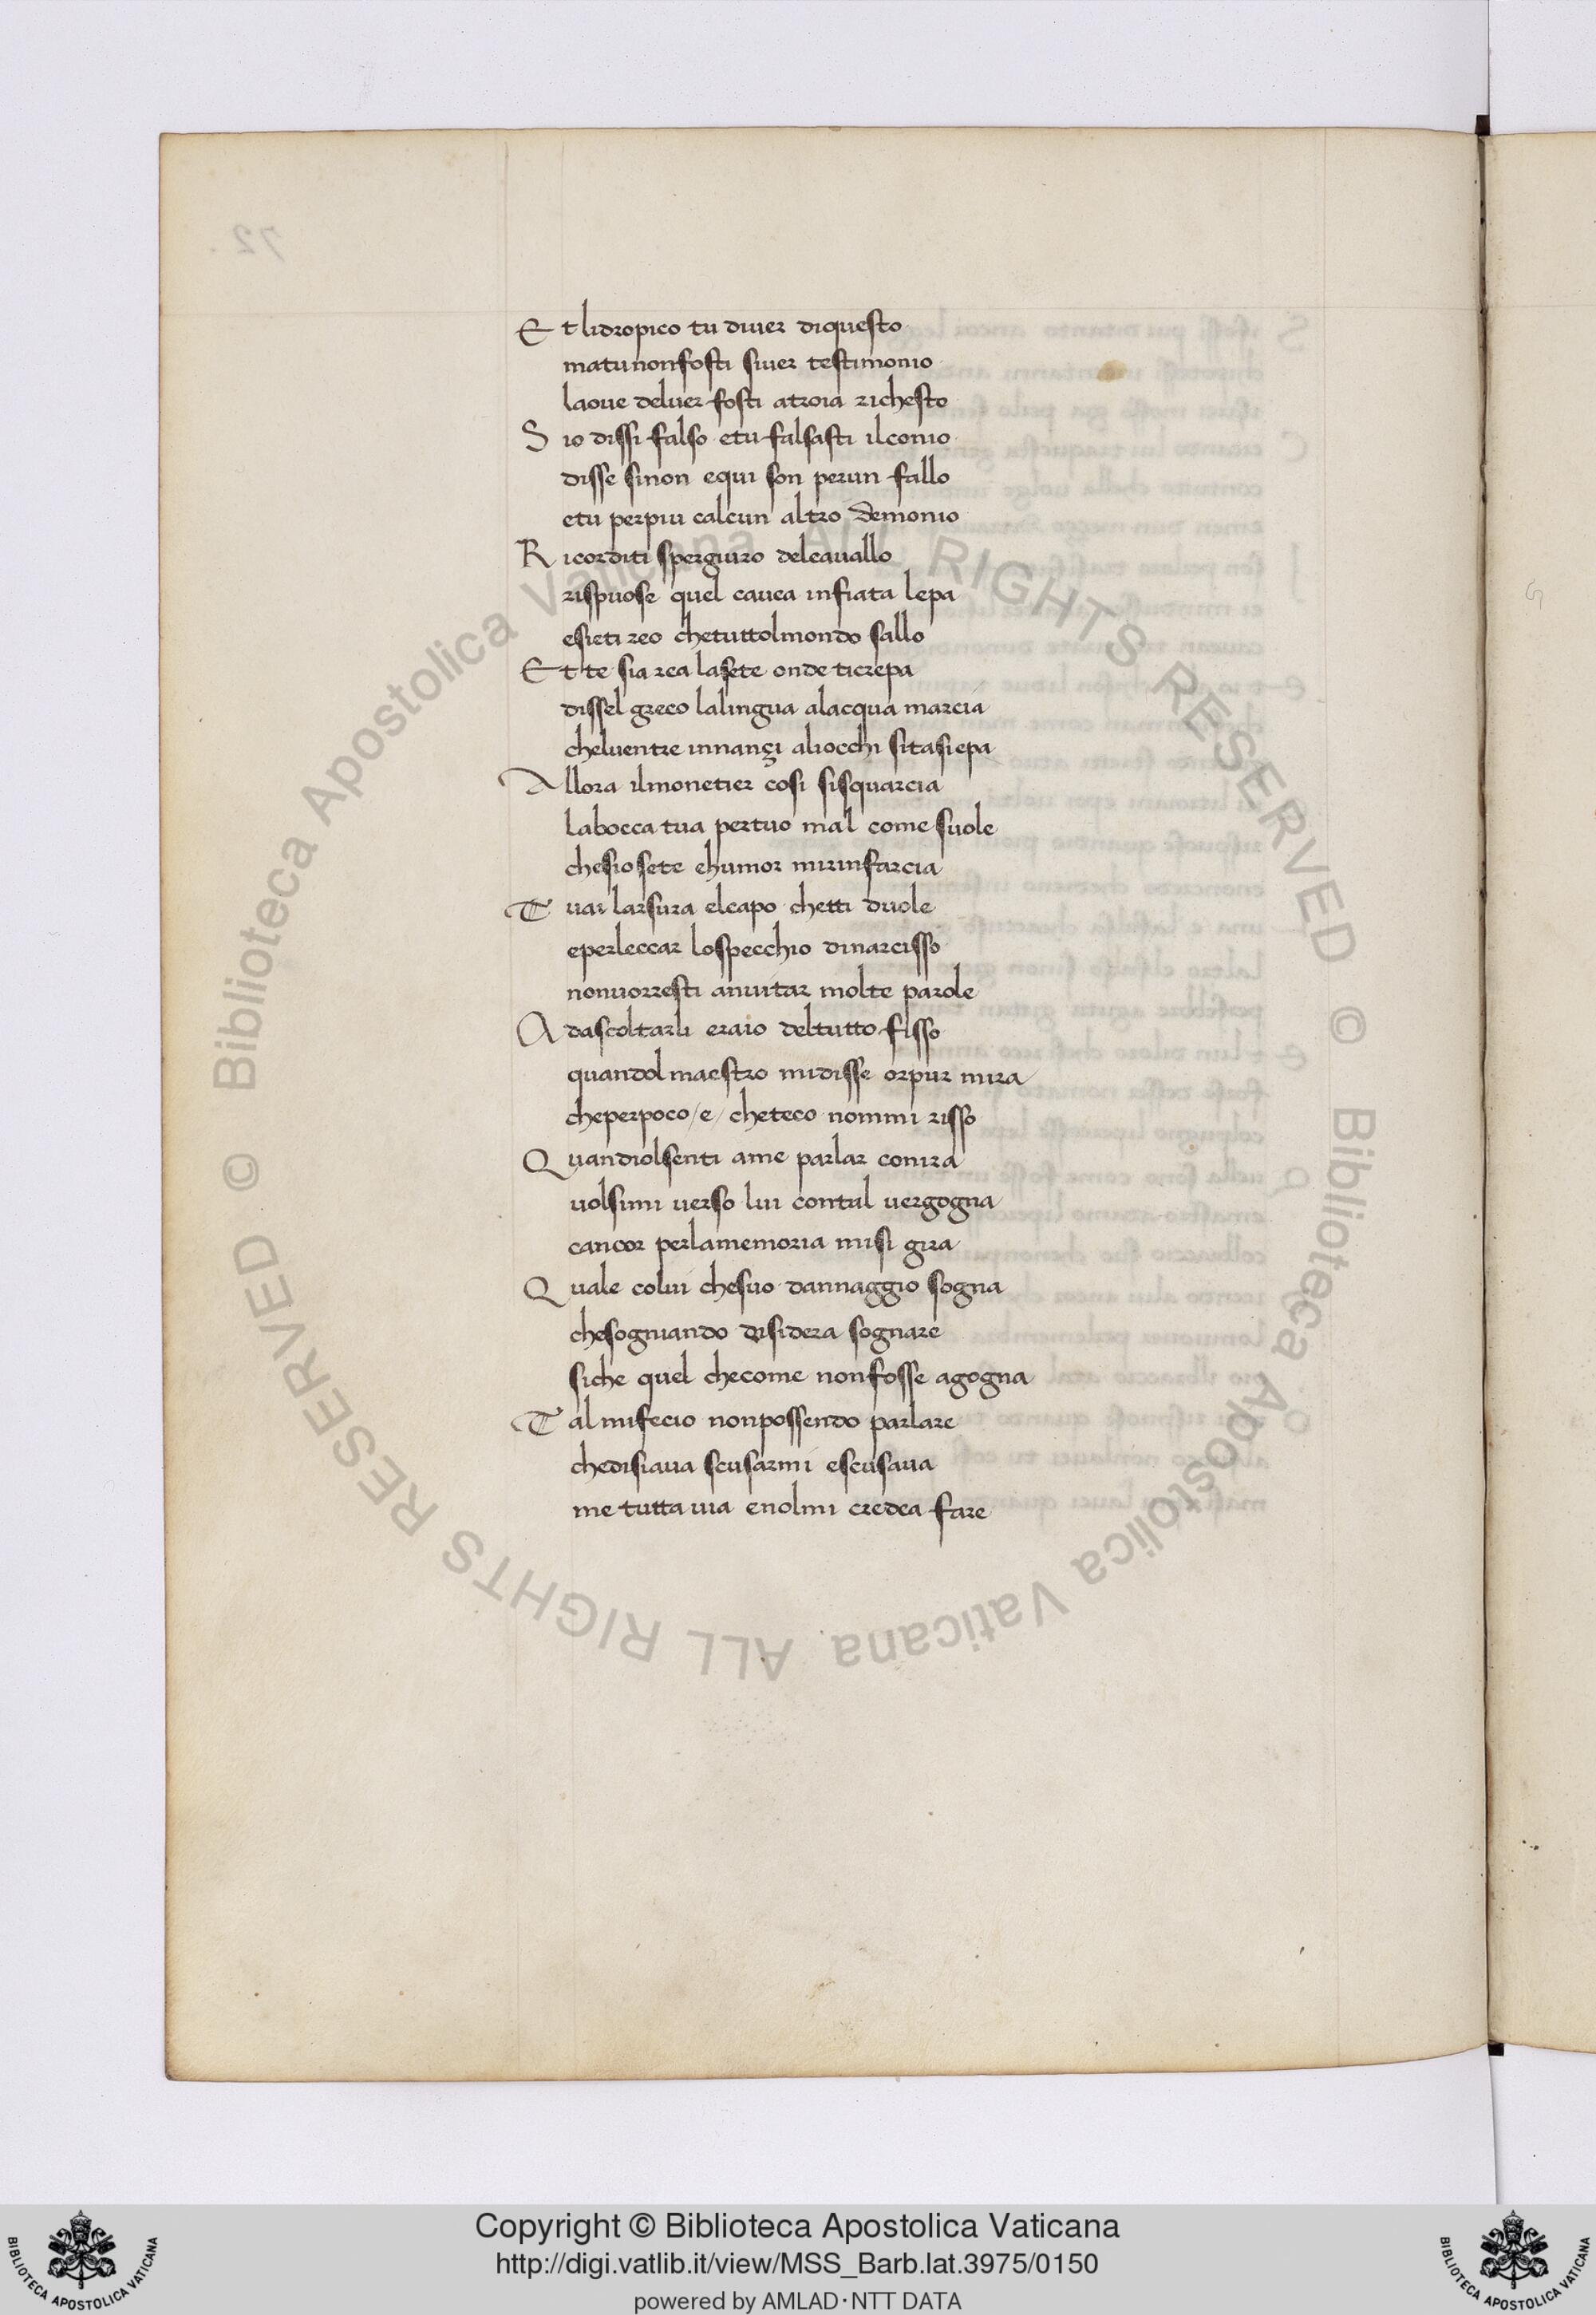 Et lidropico tu diver diquesto
matunonfosti siver testimonio
laove delver fosti atroia richesto
Sio dissi falso etu falsasti ilconio
disse sinon equi son perun fallo
etu perpiu calcun altro demonio
Ricorditi sperguro delcavallo
rispuose quel cavea infiata lepa
esieti reo chetuttolmondo sallo
Et te sia rea lasete onde ticrepa
dissel greco lalingua alacqua marcia
chelventre innançi aliocchi sitasiepa
Allora ilmonetier cosi sisquarcia
labocca tua pertuo mal come suole
chesiosete ehumor mirinfarcia
Tuai larsura elcapo chetti duole
eperleccar lospecchio dinarcisso
nonvorresti ainvitar molte parole
Adascoltarli eraio deltutto fisso
quandol maestro midisse orpur mira
cheperpoco /e/ cheteco nommi risso
Quandiolsenti ame parlar conira
volsimi verso lui contal vergogna
cancor perlamemoria misi gira
Quale colui chesuo dannaggio sogna
chesogniando disidera sognare
siche quel checome nonfosse agogna
Tal mifecio nonpossendo parlare
chedisiava scusarmi escusava
me tutta via enolmi credea fare
72.
Copyright © Biblioteca Apostolica Vaticana
http://digi.vatlib.it/view/MSS_Barb.lat.3975/0150
powered by AMLAD·NTT DATA
BIBLIOTECA APOSTOLICA VATICANA
BIBLIOTECA APOSTOLICA VATICANA
© Biblioteca Apostolica Vaticana ALL RIGHTS RESERVED
© Biblioteca Apostolica Vaticana ALL RIGHTS RESERVED